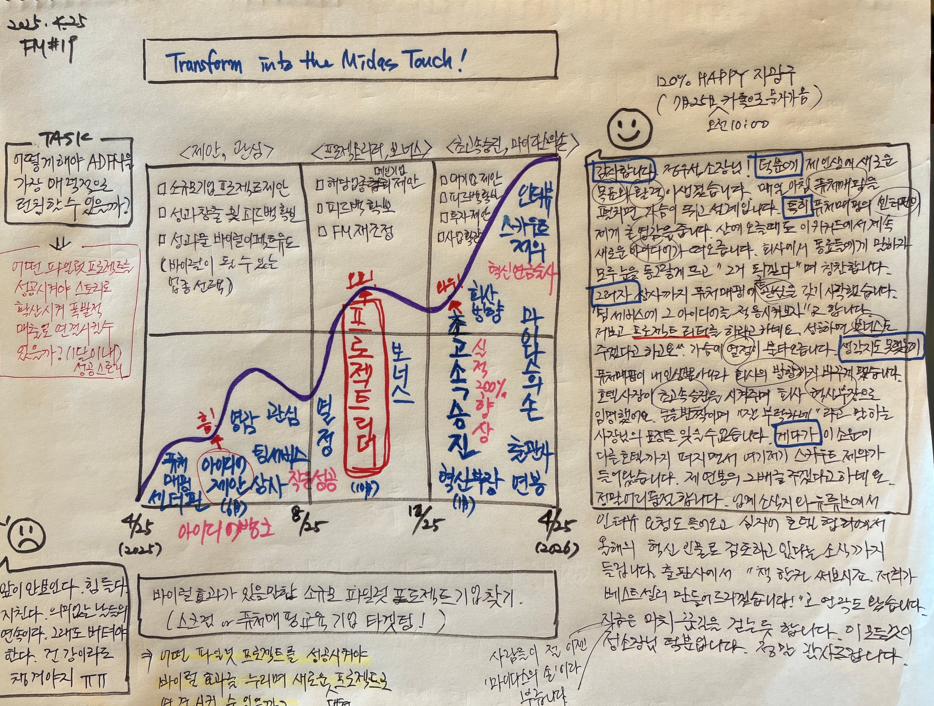 2025.4.25
FM#19
Transform into the Midas Touch!
120% HAPPY 지광구
오전 10:00
TASK
어떻게 해야 ADFM을
가장 매력적으로
런칭할 수 있을까?
어떤 파일럿 프로젝트를
성공시켜야 스토리로
확산시켜 폭발적
매출로 연결시킬수
있을까? (1달이내)
성공스토리
<제안, 관심>
□ 소규모기업 프로젝트 제안
□ 성과창출 및 피드백 확보
□ 성과물 바이럴이펙트 유도
(바이럴이 될 수 있는
업종 선택)
<프로젝트리더, 보너스>
□ 피드백 확보
□ FM 재조정
<초고속승진, 마이다스의손>
□ 추가제안
흠!
퓨처
매핑
센터핀
아이디어
제안
(6월)
영감
관심
팀 서비스
상사
열정
작은성공
와우
프로젝트리더
(10월)
보너스
아하!
회사
방향
초고속승진
혁신부장
(1월)
실적 200% 향상
인터뷰
스카우트
제의
혁신 연금술사
마이다스의 손
출판사
연봉
4/25
(2025)
8/25
12/25
4/25
(2026)
아이디어 발표
앞이 안보인다. 힘들다.
지친다. 의미없는 날들의
연속이다. 그래도 버텨야
한다. 건강이라도
챙겨야지 ㅠㅠ
바이럴 효과가 있을만한 소규모 파일럿 프로젝트 기업 찾기.
(스크린 or 퓨처매핑교육 기업 타겟팅!)
어떤 파일럿 프로젝트를 성공시켜야
바이럴 효과를 누리며 새로운 프로젝트로
연결시킬 수 있을까?
사람들이 절 이젠
'마이다스의 손'이라
부릅니다
감사합니다 정우서 소장님! 덕분에 제 인생에 새로운
목표와 활력이 생겼습니다. 매일 아침 퓨처매핑을
펼치면 가슴이 뛰고 설레입니다. 특히 퓨처매핑의
제게 큰 영감을 줍니다. 산에 오를때도 이 키워드에서 계속
새로운 아이디어가 떠오릅니다. 회사에서 동료들에게 말하자
모두 눈을 동그랗게 뜨고 "그거 되겠다"며 칭찬합니다.
그러자 상사까지 퓨처매핑에 관심을 갖기 시작했습니다.
"팀 서비스에 그 아이디어를 적용시켜보지"라고 합니다.
저보고 프로젝트 리더를 하라고 하데요. 성공하면 보너스도
주겠다고 하고요^^ 가슴에 열정이 불타오릅니다. 생각지도 못했는데
퓨처매핑이 내 인생뿐 아니라 회사의 방향까지 바꾸게 됐습니다.
호텔사장이 초고속승진을 시켜주며 회사 혁신부장으로
임명했어요. 눈을 반짝이며 "잘 부탁하네"라고 말하는
사장님의 표정을 잊을 수 없습니다. 게다가 이 소문이
다른호텔까지 퍼지면서 여기저기 스카우트 제의가
들어왔습니다. 제 연봉의 2배를 주겠다고 하데요.
정말 어리둥절합니다. 업계 소식지와 유튜브에서
인터뷰 요청도 들어오고 심지어 호텔 협회에서
올해의 혁신 인물로 검토하고 있다는 소식까지
들립니다. 출판사에서 "책 한권 써보시죠. 저희가
베스트셀러 만들어드리겠습니다!"고 연락도 왔습니다.
지금은 마치 꿈길을 걷는듯 합니다. 이 모든것이
정소장님 덕분입니다. 정말 감사드립니다.